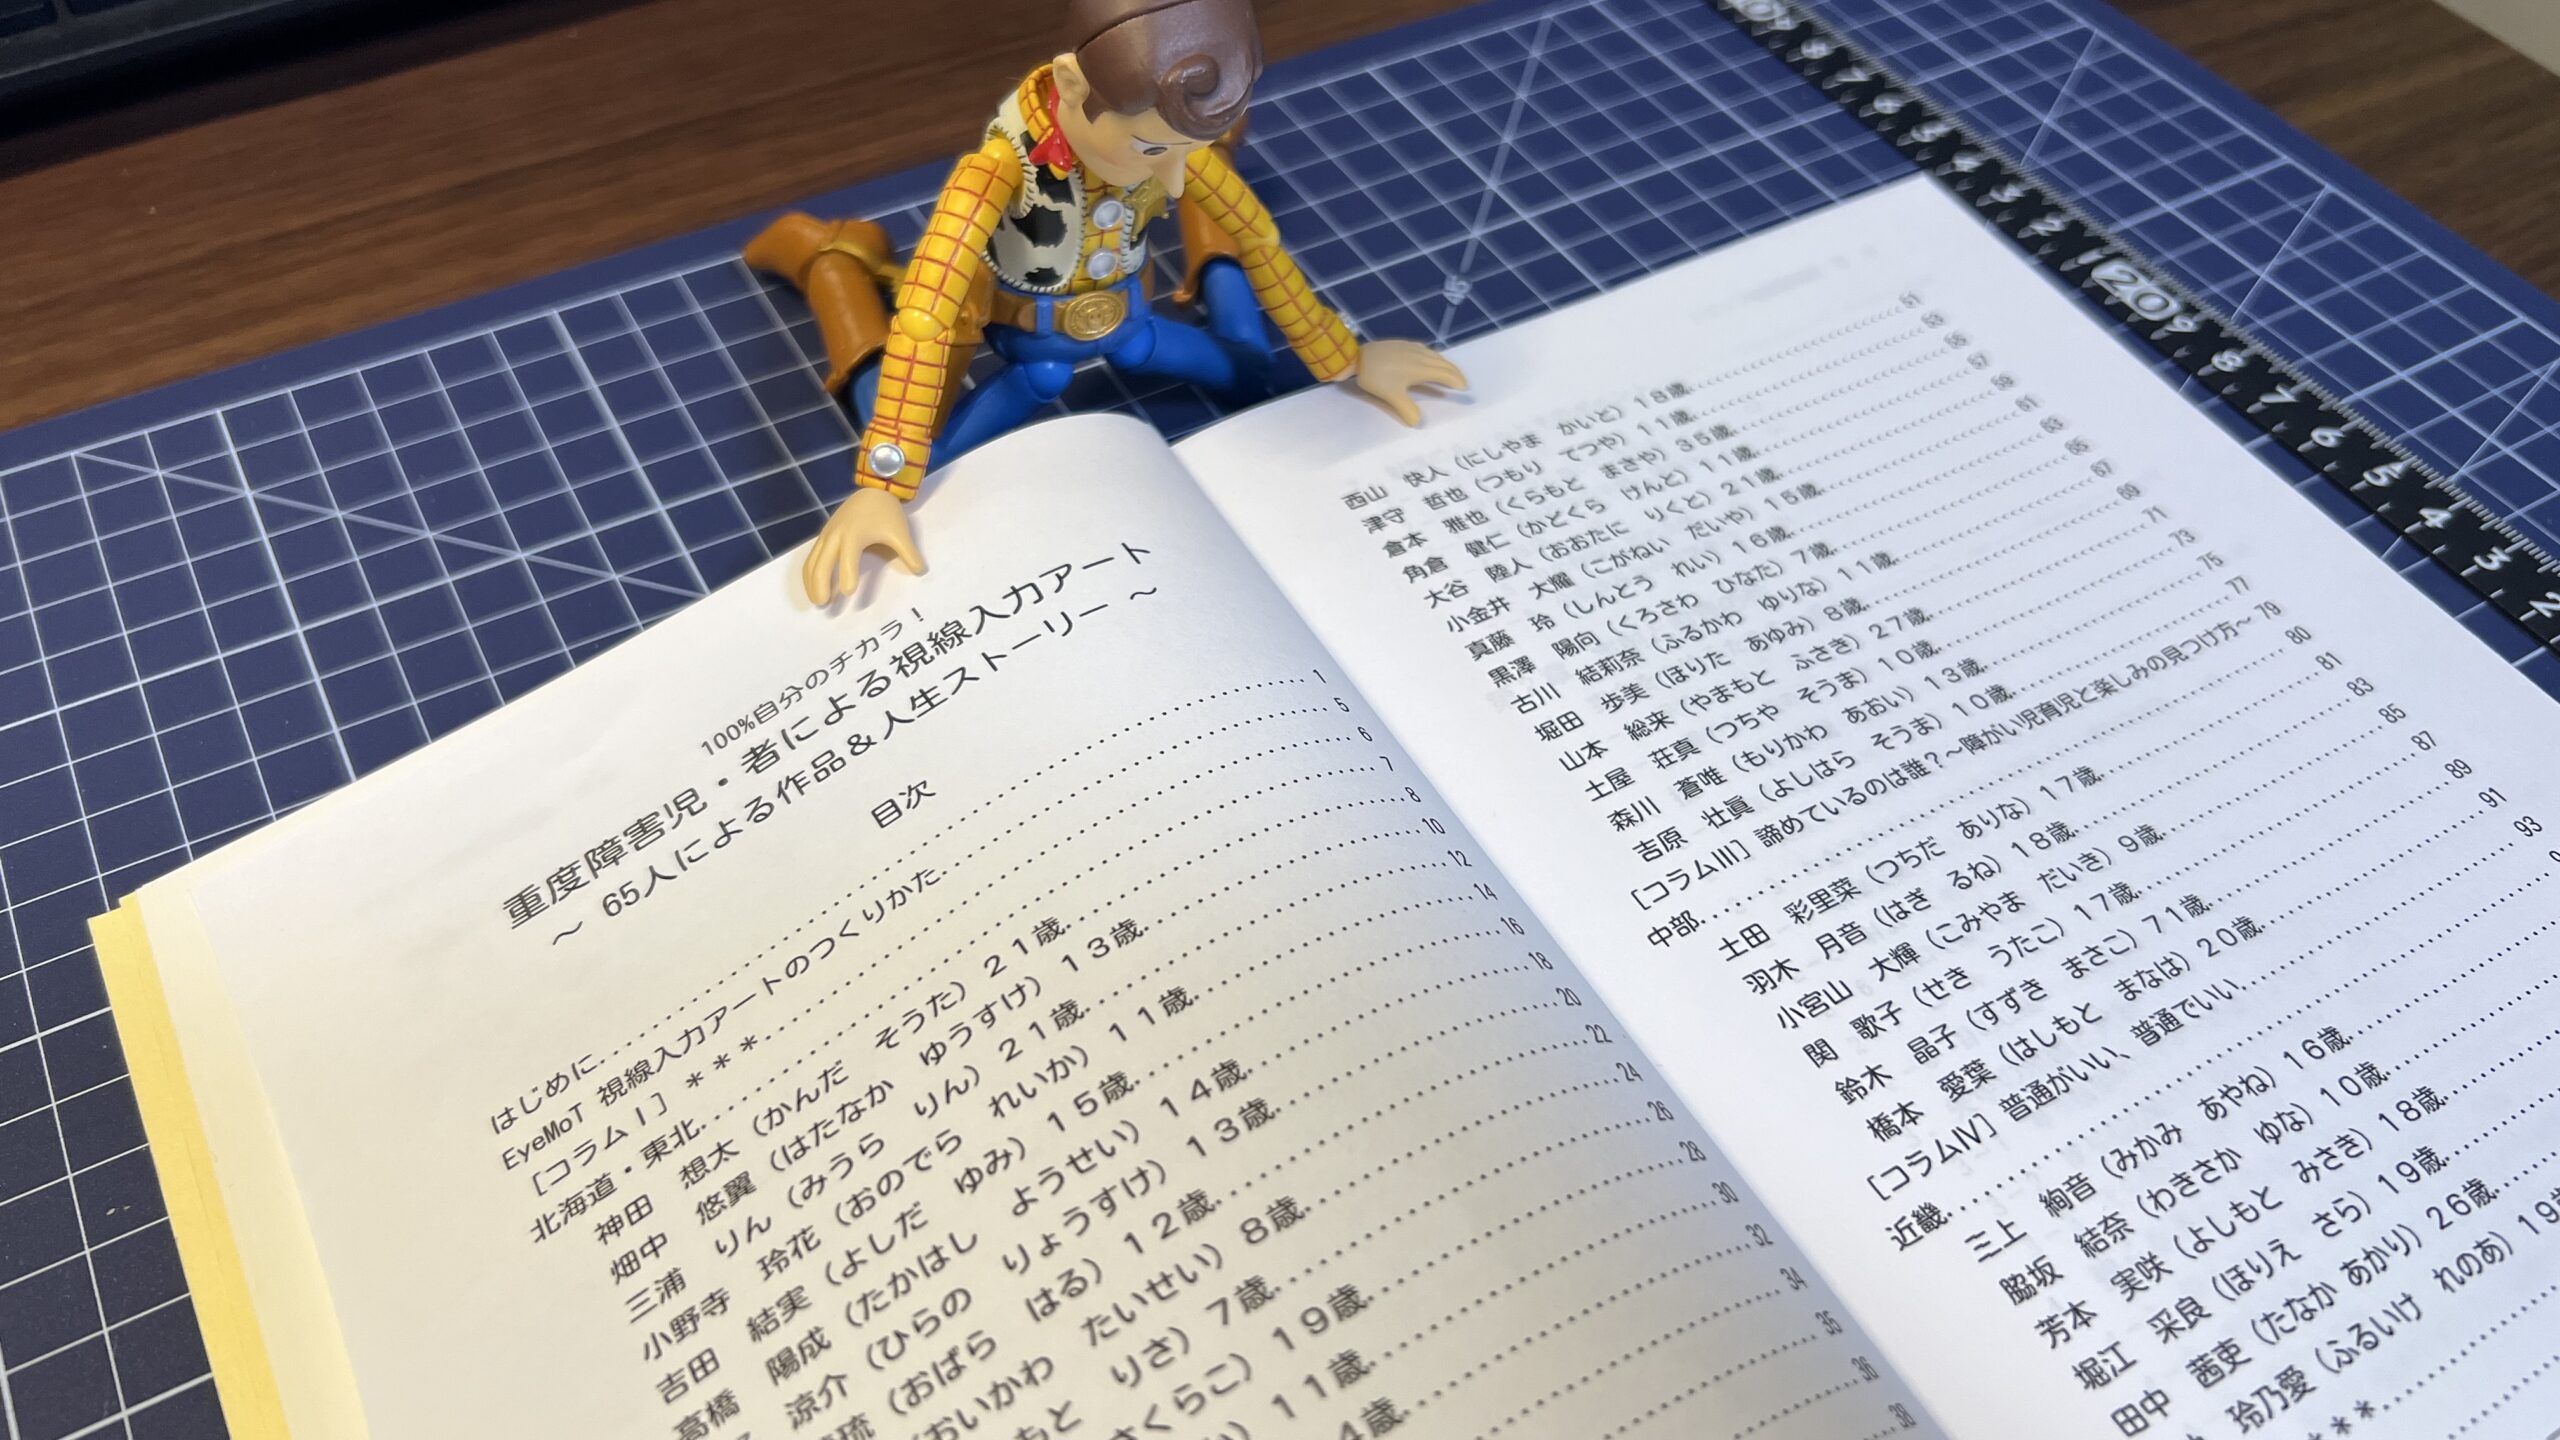 100%自分のチカラ！
重度障害児・者による視線入力アート
～ 65人による作品＆人生ストーリー ～
目次
はじめに 1
EyeMoT 視線入力アートのつくりかた 5
［コラムⅠ］＊＊＊ 6
北海道・東北 7
神田 想太（かんだ そうた）２１歳 8
畑中 悠翼（はたなか ゆうすけ）１３歳 10
三浦 りん（みうら りん）２１歳 12
小野寺 玲花（おのでら れいか）１１歳 14
吉田 結実（よしだ ゆみ）１５歳 16
高橋 陽成（たかはし ようせい）１４歳 18
涼介（ひらの りょうすけ）１３歳 20
琉（おばら はる）１２歳 22
（おいかわ たいせい）８歳 24
もと りさ）７歳 26
さくらこ）１９歳 28
１１歳 30
４歳 32
34
35
36
38
西山 快人（にしやま かいと）１８歳 51
津守 哲也（つもり てつや）１１歳 53
倉本 雅也（くらもと まさや）３５歳 55
角倉 健仁（かどくら けんと）１１歳 57
大谷 陸人（おおたに りくと）２１歳 59
小金井 大耀（こがねい だいや）１５歳 61
真藤 玲（しんとう れい）１６歳 63
黒澤 陽向（くろさわ ひなた）７歳 65
古川 結莉奈（ふるかわ ゆりな）１１歳 67
堀田 歩美（ほりた あゆみ）８歳 69
山本 総来（やまもと ふさき）２７歳 71
土屋 荘真（つちや そうま）１０歳 73
森川 蒼唯（もりかわ あおい）１３歳 75
吉原 壮眞（よしはら そうま）１０歳 77
［コラムⅢ］諦めているのは誰？～障がい児育児と楽しみの見つけ方～ 79
中部 80
土田 彩里菜（つちだ ありな）１７歳 81
羽木 月音（はぎ るね）１８歳 83
小宮山 大輝（こみやま だいき）９歳 85
関 歌子（せき うたこ）１７歳 87
鈴木 晶子（すずき まさこ）７１歳 89
橋本 愛葉（はしもと まなは）２０歳 91
［コラムⅣ］普通がいい、普通でいい 93
近畿
三上 絢音（みかみ あやね）１６歳
脇坂 結奈（わきさか ゆな）１０歳
芳本 実咲（よしもと みさき）１８歳
堀江 采良（ほりえ さら）１９歳
田中 茜吏（たなか あかり）２６歳
玲乃愛（ふるいけ れのあ）１９歳
＊＊
45
9 8 7 6 5 4 3 2 1 20 9 8 7 6 5 4 3 2